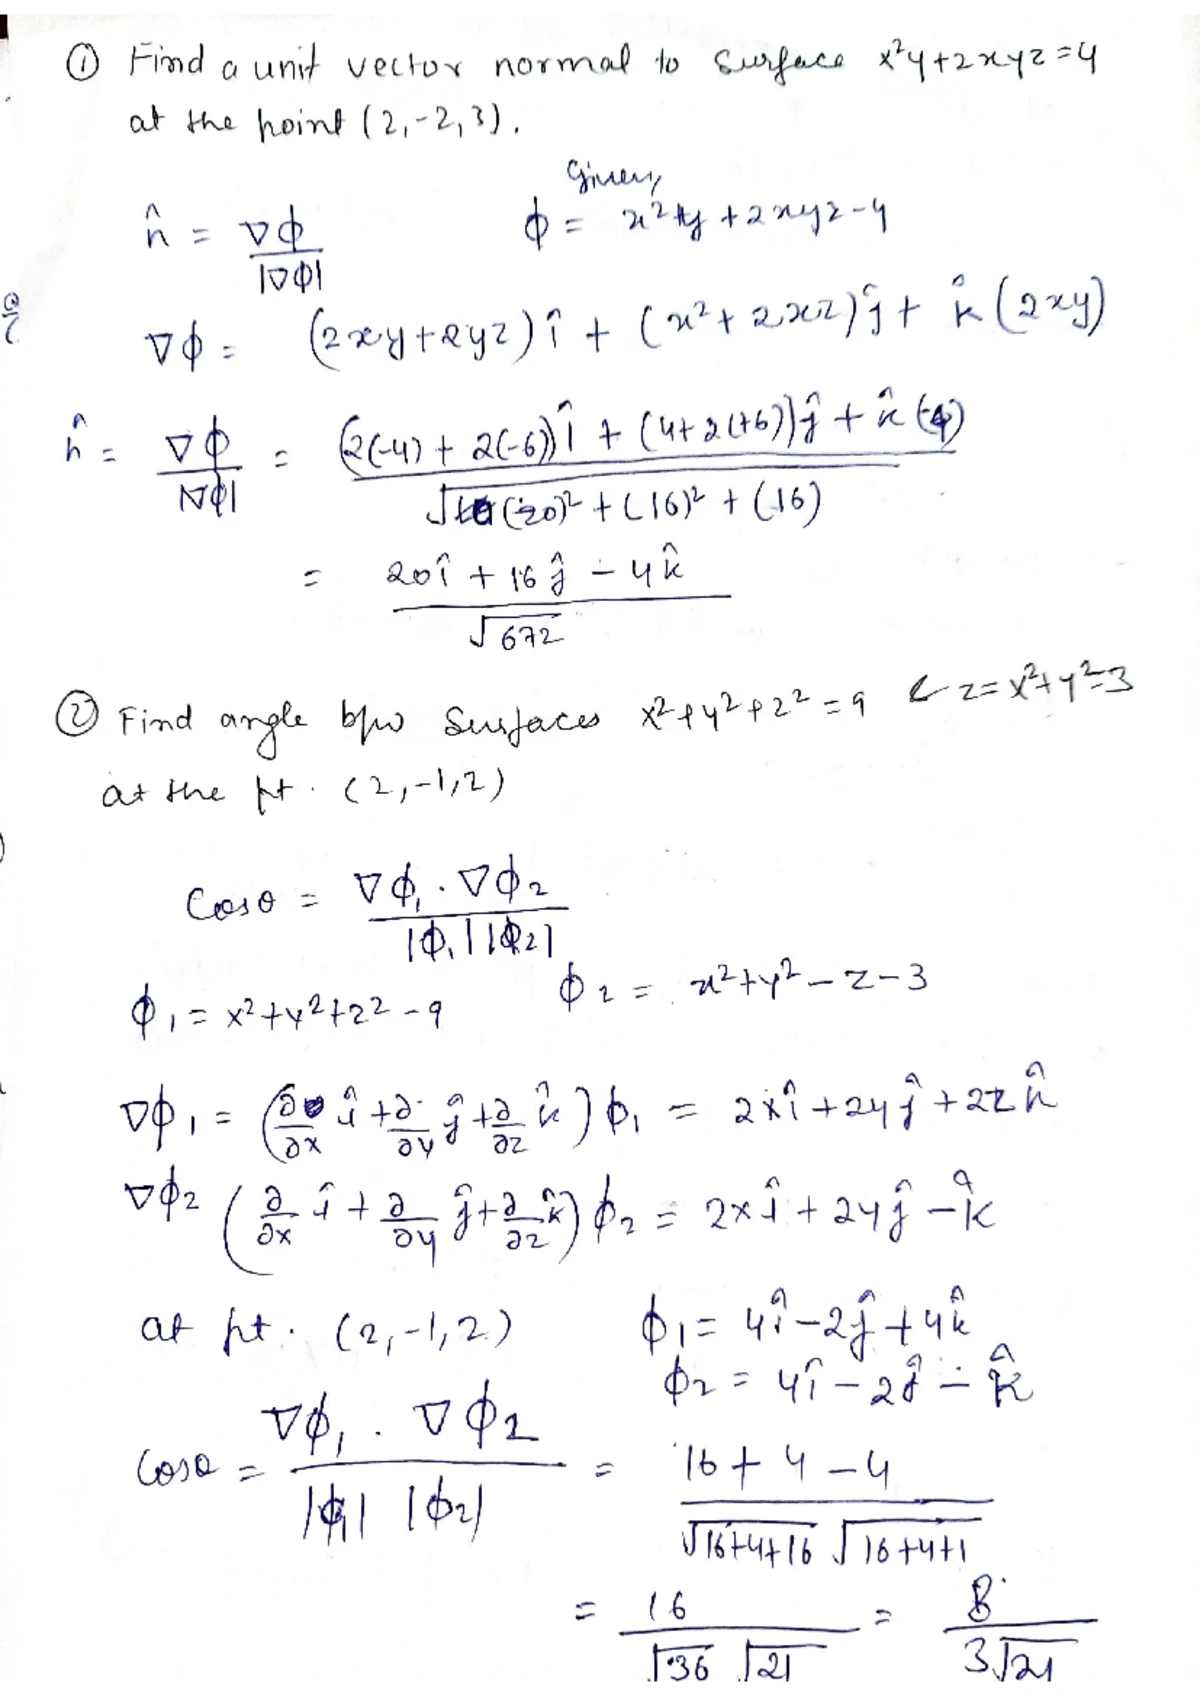 ① Find a unit vector normal to surface x²y+2xyz=4
at the point (2,-2,3).
Given,
n̂ = ∇ϕ / |∇ϕ|
ϕ = x²y + 2xyz-4
∇ϕ = (2xy+2yz) î + (x²+2xz) ĵ + k̂ (2xy)
n̂ = ∇ϕ / |∇ϕ| = (2(-4) + 2(-6)) î + (4+2(+6)) ĵ + k̂ (-4) / √(20)² + (16)² + (16)
= 20î + 16ĵ - 4k̂ / √672
② Find angle b/w surfaces x²+y²+z²=9 & z=x²+y²-3
at the pt. (2,-1,2)
Cosθ = ∇ϕ₁ . ∇ϕ₂ / |ϕ₁| |ϕ₂|
ϕ₁ = x²+y²+z²-9
ϕ₂ = x²+y²-z-3
∇ϕ₁ = (∂/∂x î + ∂/∂y ĵ + ∂/∂z k̂) ϕ₁ = 2xî + 2yĵ + 2zk̂
∇ϕ₂ (∂/∂x î + ∂/∂y ĵ + ∂/∂z k̂) ϕ₂ = 2xî + 2yĵ - k̂
at pt. (2,-1,2)
ϕ₁ = 4î - 2ĵ + 4k̂
ϕ₂ = 4î - 2ĵ - k̂
Cosθ = ∇ϕ₁ . ∇ϕ₂ / |ϕ₁| |ϕ₂| = 16+4-4 / √16+4+16 √16+4+1
= 16 / √36 √21 = 8 / 3√21